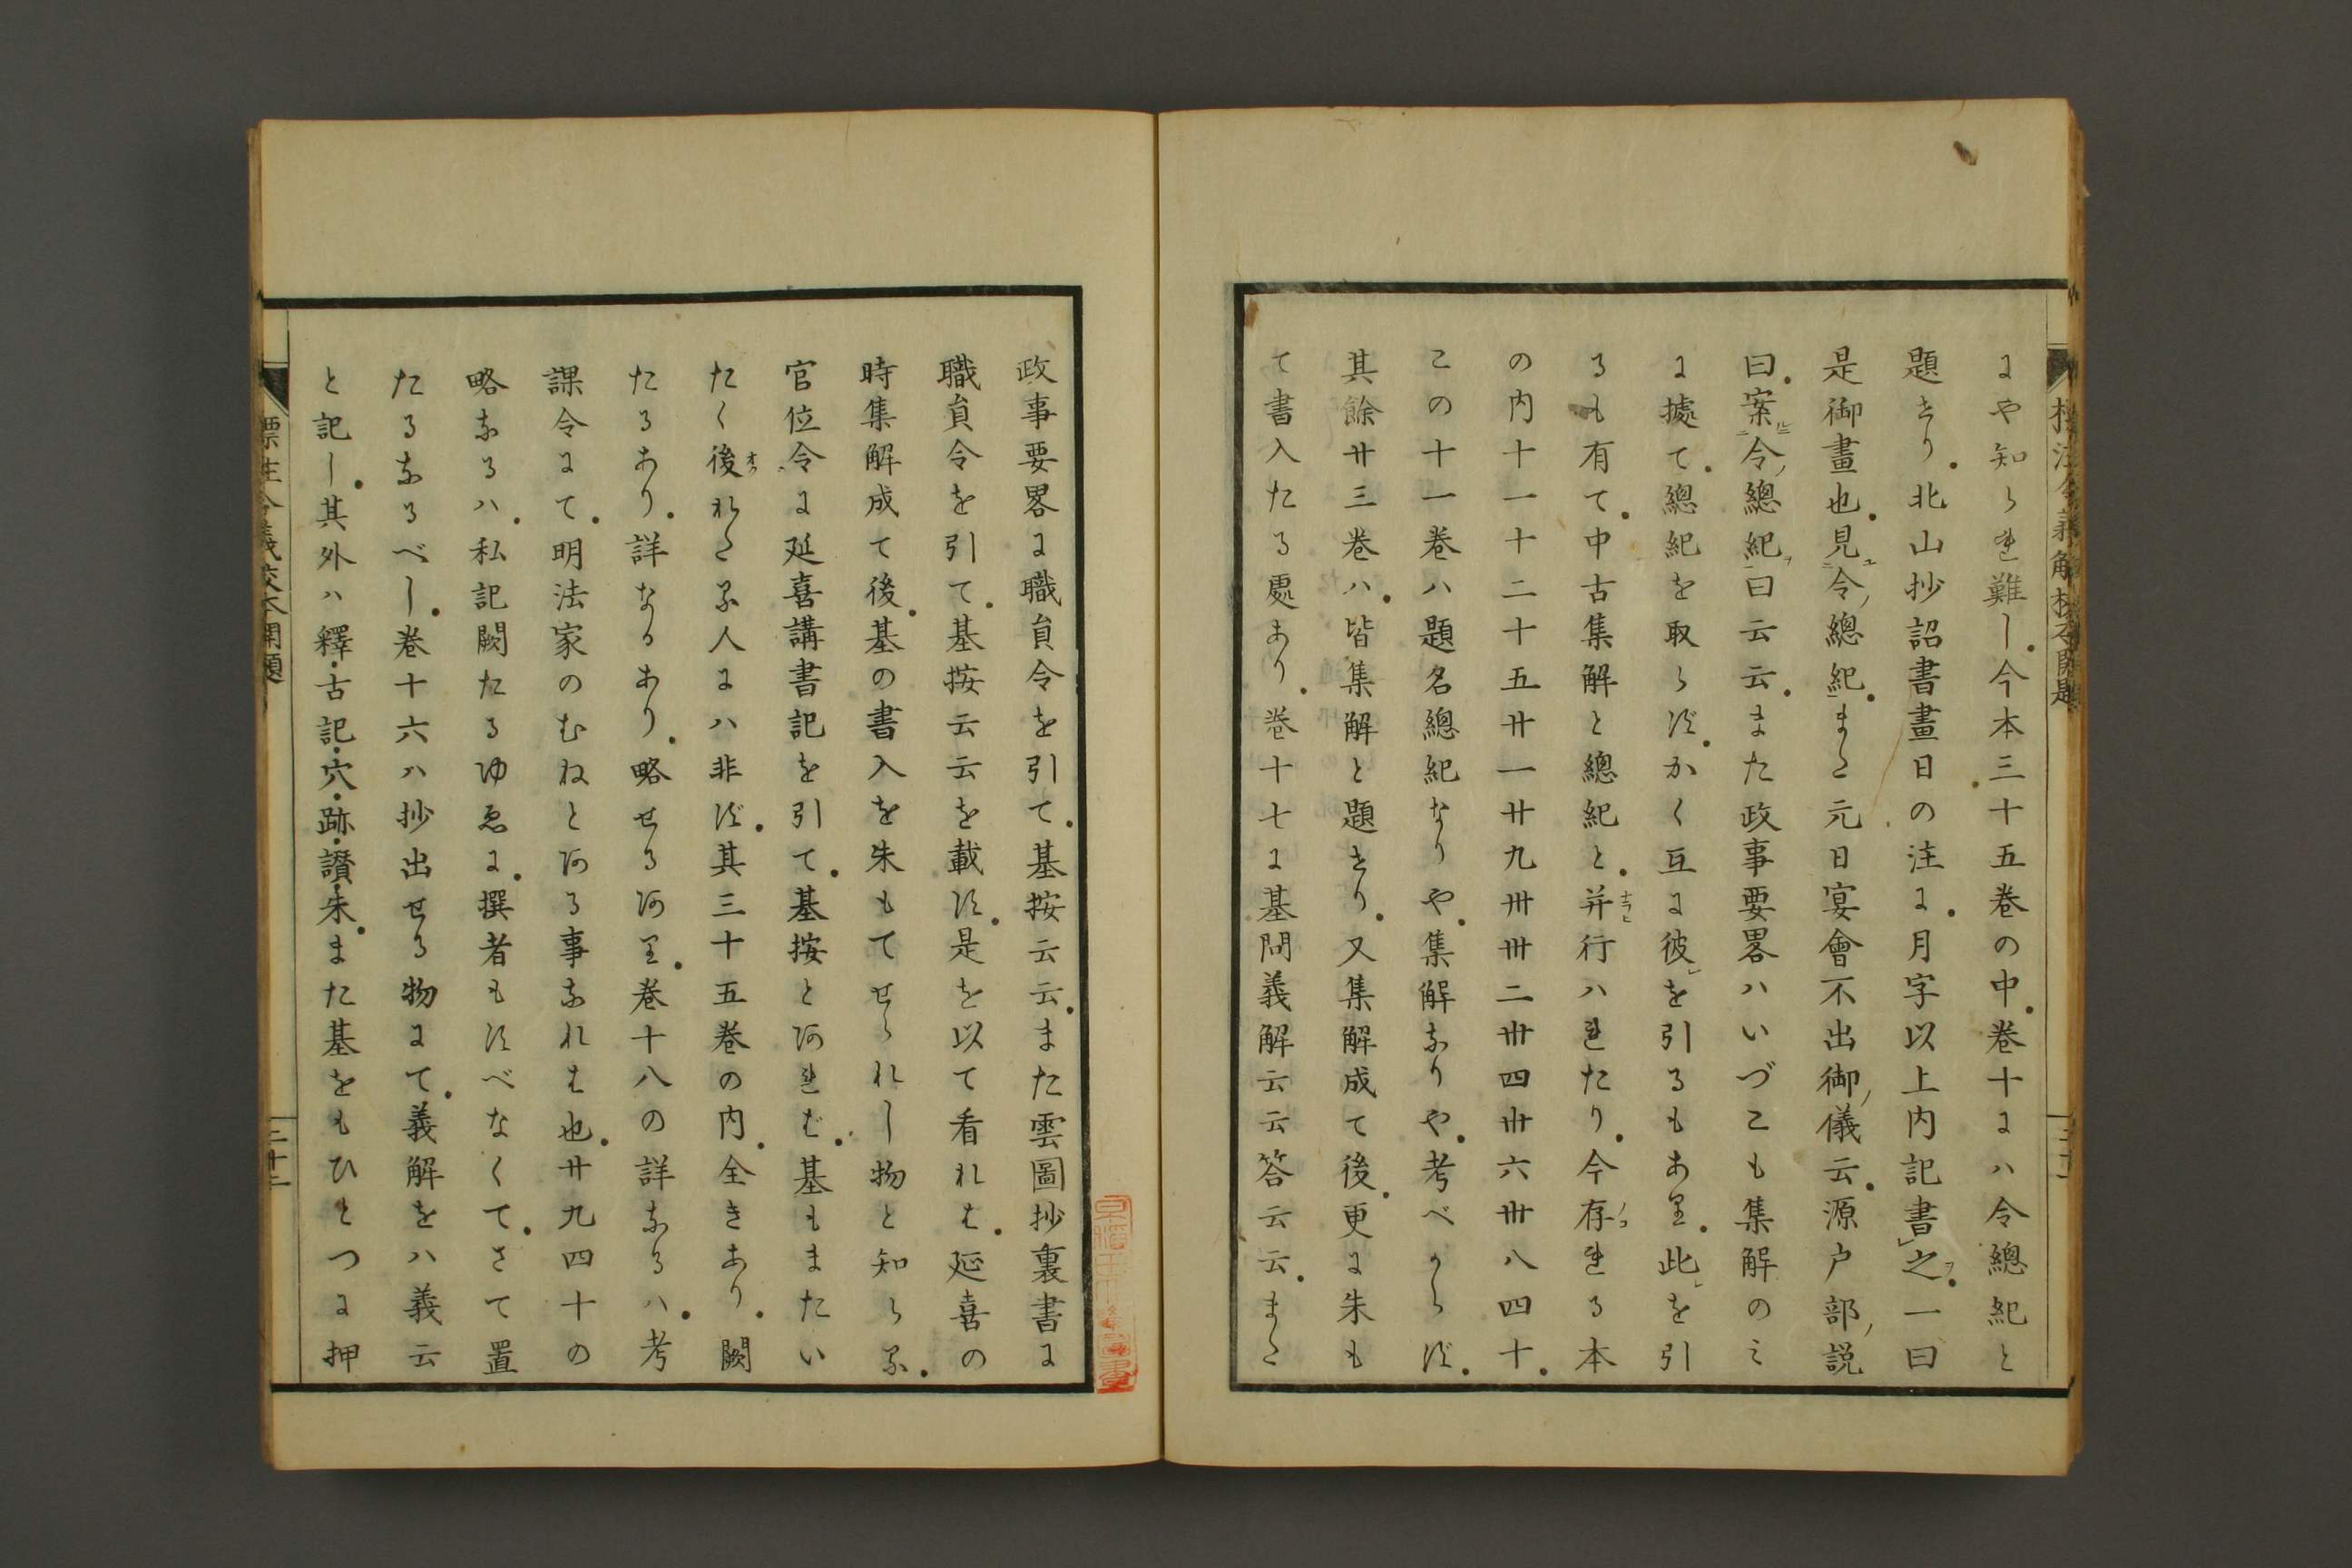 にや知られ難し今本三十五巻の中巻十にハ令總紀と
題せり北山抄詔書畫日の注に月字以上内記書之一曰
是御畫也見令總紀また元日宴會不出御儀云源戸部説
曰案令總紀曰云云また政事要畧ハいづこも集解のミ
に據て總紀を取らずかく互に彼を引るもあり此を引
るも有て中古集解と總紀と并行ハれたり今存れる本
の内十一十二十五廿一廿九卅卅二卅四卅六卅八四十
この十一巻ハ題名總紀なりや集解なりや考べからず
其餘廿三巻ハ皆集解と題せり又集解成て後更に朱も
て書入たる處あり巻十七に基問義解云云答云云また
政事要畧に職貟令を引て基按云云また雲圖抄裏書に
職貟令を引て基按云云を載す是を以て看れば延喜の
時集解成て後基の書入を朱もてせられし物と知らる
官位令に延喜講書記を引て基按とあれば基もまたい
たく後れたる人にハ非ず其三十五巻の内全きあり闕
たるあり詳なるあり略せるあり巻十八の詳なるハ考
課令にて明法家のむねとある事なれば也廿九四十の
略なるハ私記闕たるゆゑに撰者もすべなくてさて置
たるなるべし巻十六ハ抄出せる物にて義解をハ義云
と記し其外ハ釋古記穴跡讃朱また基をもひとつに押
標注令義解校本開題